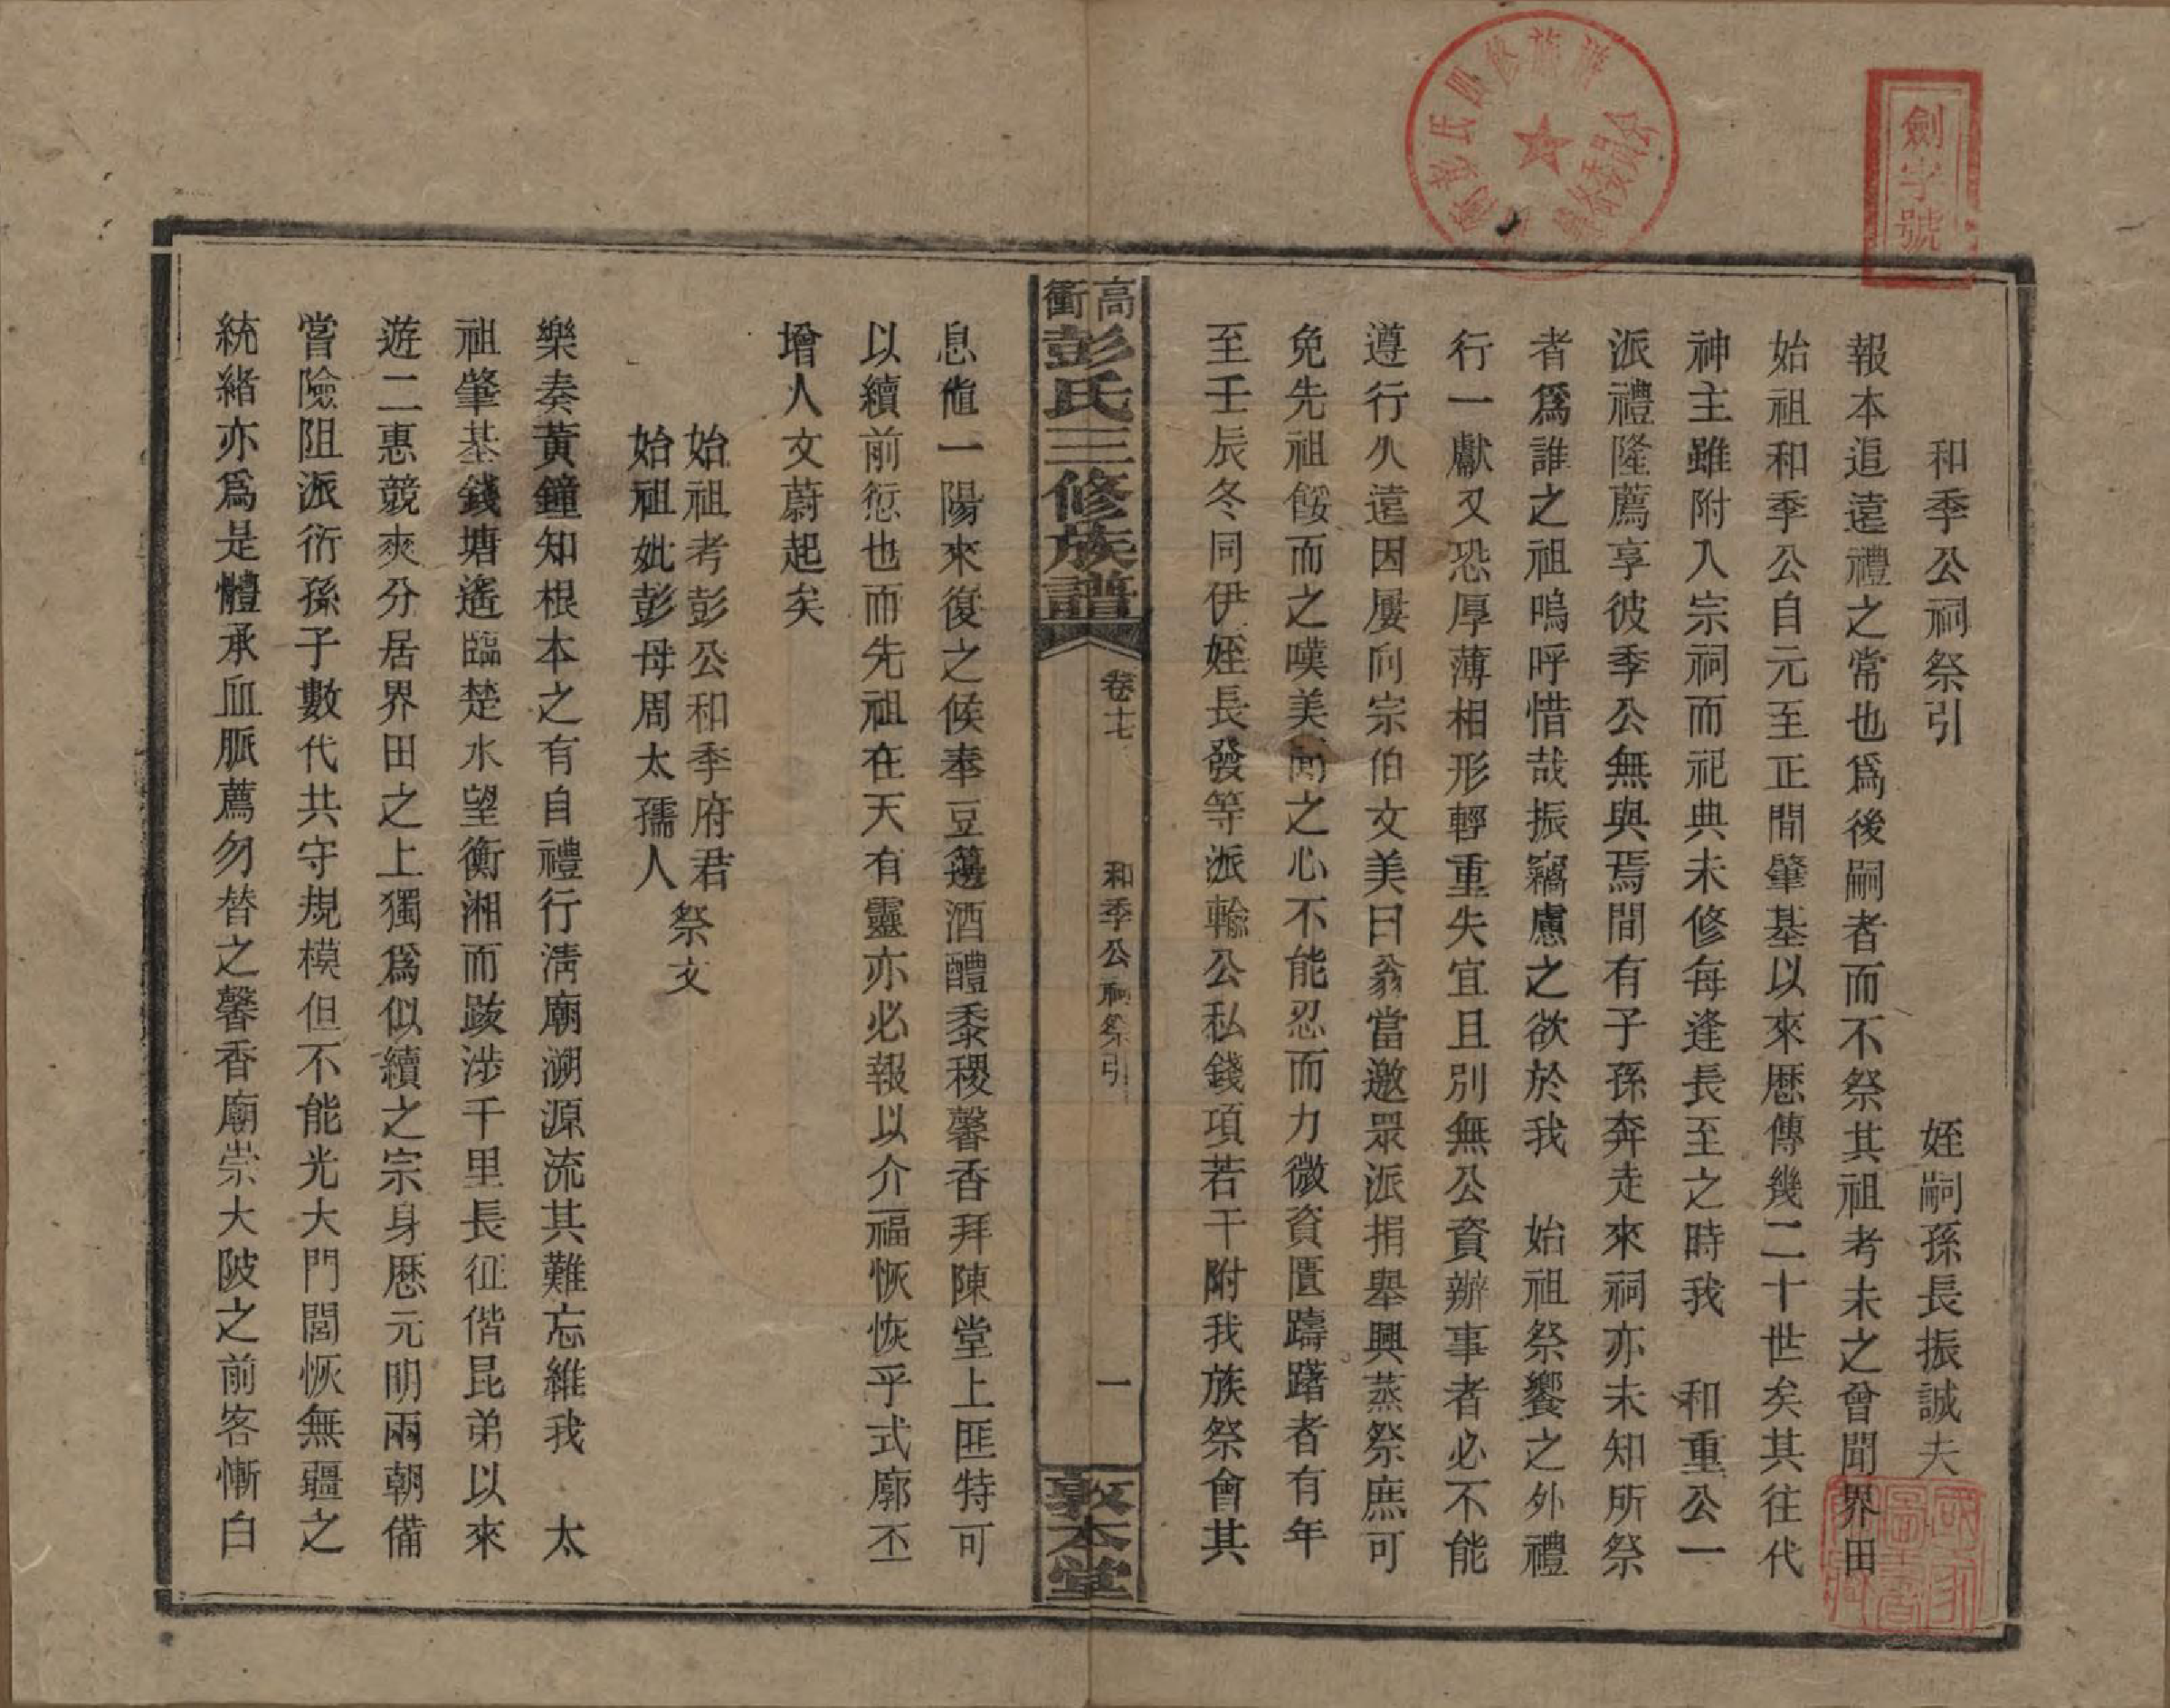 劍字號
和季公祠祭引　姪嗣孫長振誠夫
報本追遠禮之常也爲後嗣者而不祭其祖考未之曾聞界田
始祖和季公自元至正間肇基以來歷傳幾二十世矣其往代
神主雖附入宗祠而祀典未修每逢長至之時我　和重公一
派禮隆薦享彼季公無與焉間有子孫奔走來祠亦未知所祭
者爲誰之祖嗚呼惜哉振竊慮之欲於我　始祖祭饗之外禮
行一獻又恐厚薄相形輕重失宜且別無公資辦事者必不能
遵行久遠因屢向宗伯文美曰翁當邀眾派捐舉興蒸祭庶可
免先祖餒而之嘆美聞之心不能忍而力微資匱躊躇者有年
至壬辰冬同伊姪長發等派輸公私錢項若干附我族祭會其
高衝彭氏三修族譜　卷十七　和季公祠祭引　一　敦本堂
息値一陽來復之候奉豆籩酒醴黍稷馨香拜陳堂上匪特可
以續前愆也而先祖在天有靈亦必報以介福恢恢乎式廓丕
增人文蔚起矣
始祖考彭公和季府君
始祖妣彭母周太孺人
祭文
樂奏黃鐘知根本之有自禮行淸廟溯源流其難忘維我　太
祖肇基錢塘遙臨楚水望衡湘而跋涉千里長征偕昆弟以來
遊二惠競爽分居界田之上獨爲似續之宗身歷元明兩朝備
嘗險阻派衍孫子數代共守規模但不能光大門閭恢無疆之
統緒亦爲是體承血脈薦勿替之馨香廟崇大陂之前客慚白